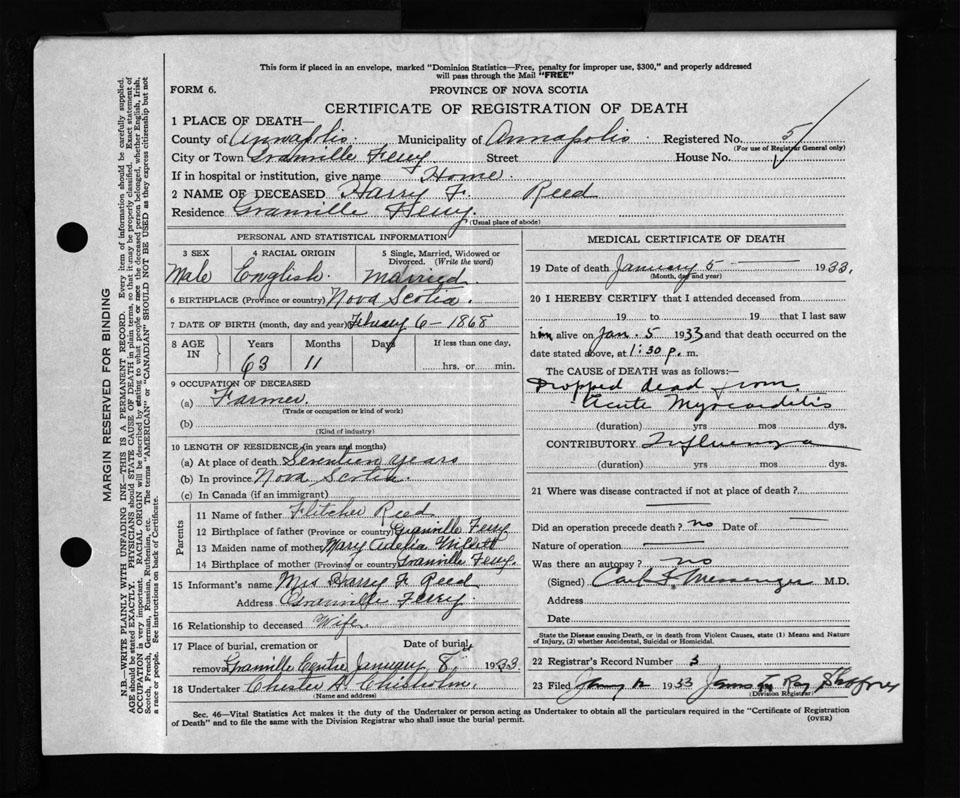 This form if placed in an envelope, marked "Dominion Statistics—Free, penalty for improper use, $300," and properly addressed
will pass through the Mail "FREE"
FORM 6.
PROVINCE OF NOVA SCOTIA
CERTIFICATE OF REGISTRATION OF DEATH
1 PLACE OF DEATH—
County of Annapolis. Municipality of Annapolis. Registered No. 5
(For use of Registrar General only)
City or Town Granville Ferry. Street House No.
If in hospital or institution, give name Home.
2 NAME OF DECEASED Harry F. Reed
Residence Granville Ferry.
(Usual place of abode)
PERSONAL AND STATISTICAL INFORMATION
3 SEX 4 RACIAL ORIGIN 5 Single, Married, Widowed or Divorced. (Write the word)
Male English. Married.
6 BIRTHPLACE (Province or country) Nova Scotia.
7 DATE OF BIRTH (month, day and year) February 6 — 1868
8 AGE IN Years Months Days If less than one day,
63 11 hrs. or min.
9 OCCUPATION OF DECEASED
(a) Farmer.
(Trade or occupation or kind of work)
(b)
(Kind of industry)
10 LENGTH OF RESIDENCE (in years and months)
(a) At place of death Seventeen years
(b) In province Nova Scotia.
(c) In Canada (if an immigrant)
Parents
11 Name of father Fletcher Reed
12 Birthplace of father (Province or country) Granville Ferry
13 Maiden name of mother Mary Adelia
14 Birthplace of mother (Province or country) Granville Ferry.
15 Informant's name Mrs Harry F. Reed
Address Granville Ferry.
16 Relationship to deceased Wife.
17 Place of burial, cremation or Date of burial
removal Granville Centre January 8 1933
18 Undertaker Chester A. Chisholm.
(Name and address)
MEDICAL CERTIFICATE OF DEATH
19 Date of death January 5 — 1933.
(Month, day and year)
20 I HEREBY CERTIFY that I attended deceased from
19 to 19 that I last saw
him alive on Jan. 5 1933 and that death occurred on
date stated above, at 1:30 p. m.
The CAUSE of DEATH was as follows:—
Dropped dead from
Acute Myocarditis
(duration) yrs mos dys.
CONTRIBUTORY Influenza
(duration) yrs mos dys.
21 Where was disease contracted if not at place of death? —
Did an operation precede death? no Date of —
Nature of operation —
Was there an autopsy? no
(Signed) Carl F. Messenger M.D.
Address
Date
State the Disease causing Death, or in death from Violent Causes, state (1) Means and Nature
of Injury, (2) whether Accidental, Suicidal or Homicidal.
22 Registrar's Record Number 3
23 Filed 1933 Ray
(Division Registrar)
Sec. 46—Vital Statistics Act makes it the duty of the Undertaker or person acting as Undertaker to obtain all the particulars required in the "Certificate of Registration
of Death" and to file the same with the Division Registrar who shall issue the burial permit. (OVER)
MARGIN RESERVED FOR BINDING
N.B.—WRITE PLAINLY WITH UNFADING INK—THIS IS A PERMANENT RECORD. Every item of information should be carefully supplied.
AGE should be stated EXACTLY. PHYSICIANS should STATE CAUSE OF DEATH in plain terms, so that it may be properly classified. Exact statement of
OCCUPATION is very important. RACIAL ORIGIN will be described by stating to what people or race the deceased person belonged, whether English, Irish,
Scotch, French, German, Russian, Ruthenian, etc. The terms "AMERICAN" or "CANADIAN" SHOULD NOT BE USED as they express citizenship but not
a race or people. See instructions on back of Certificate.